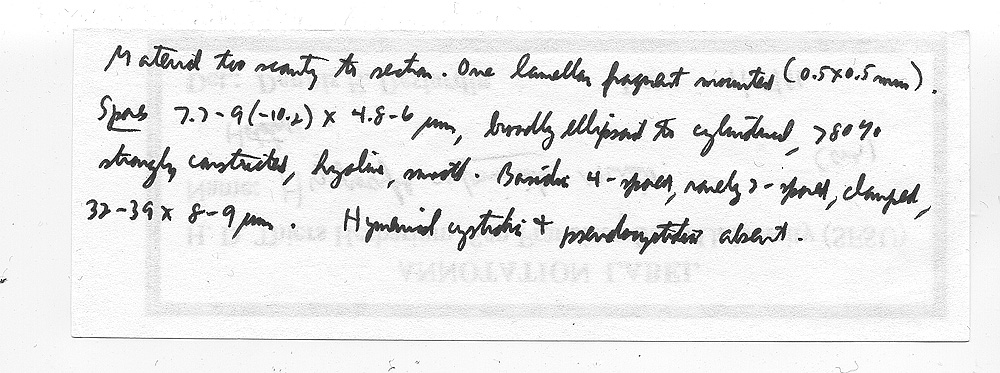 Material too scanty to section. One lamellar fragment mounted (0.5x0.5 mm).
Spores 7.7-9(-10.2) x 4.8-6 µm, broadly ellipsoid to cylindrical, >80%
strongly constricted, hyaline, smooth. Basidia 4-spored, rarely 2-spored, clamped,
32-39 x 8-9 µm. Hymenial cystidia + pseudocystidia absent.
ANNOTATION LABEL